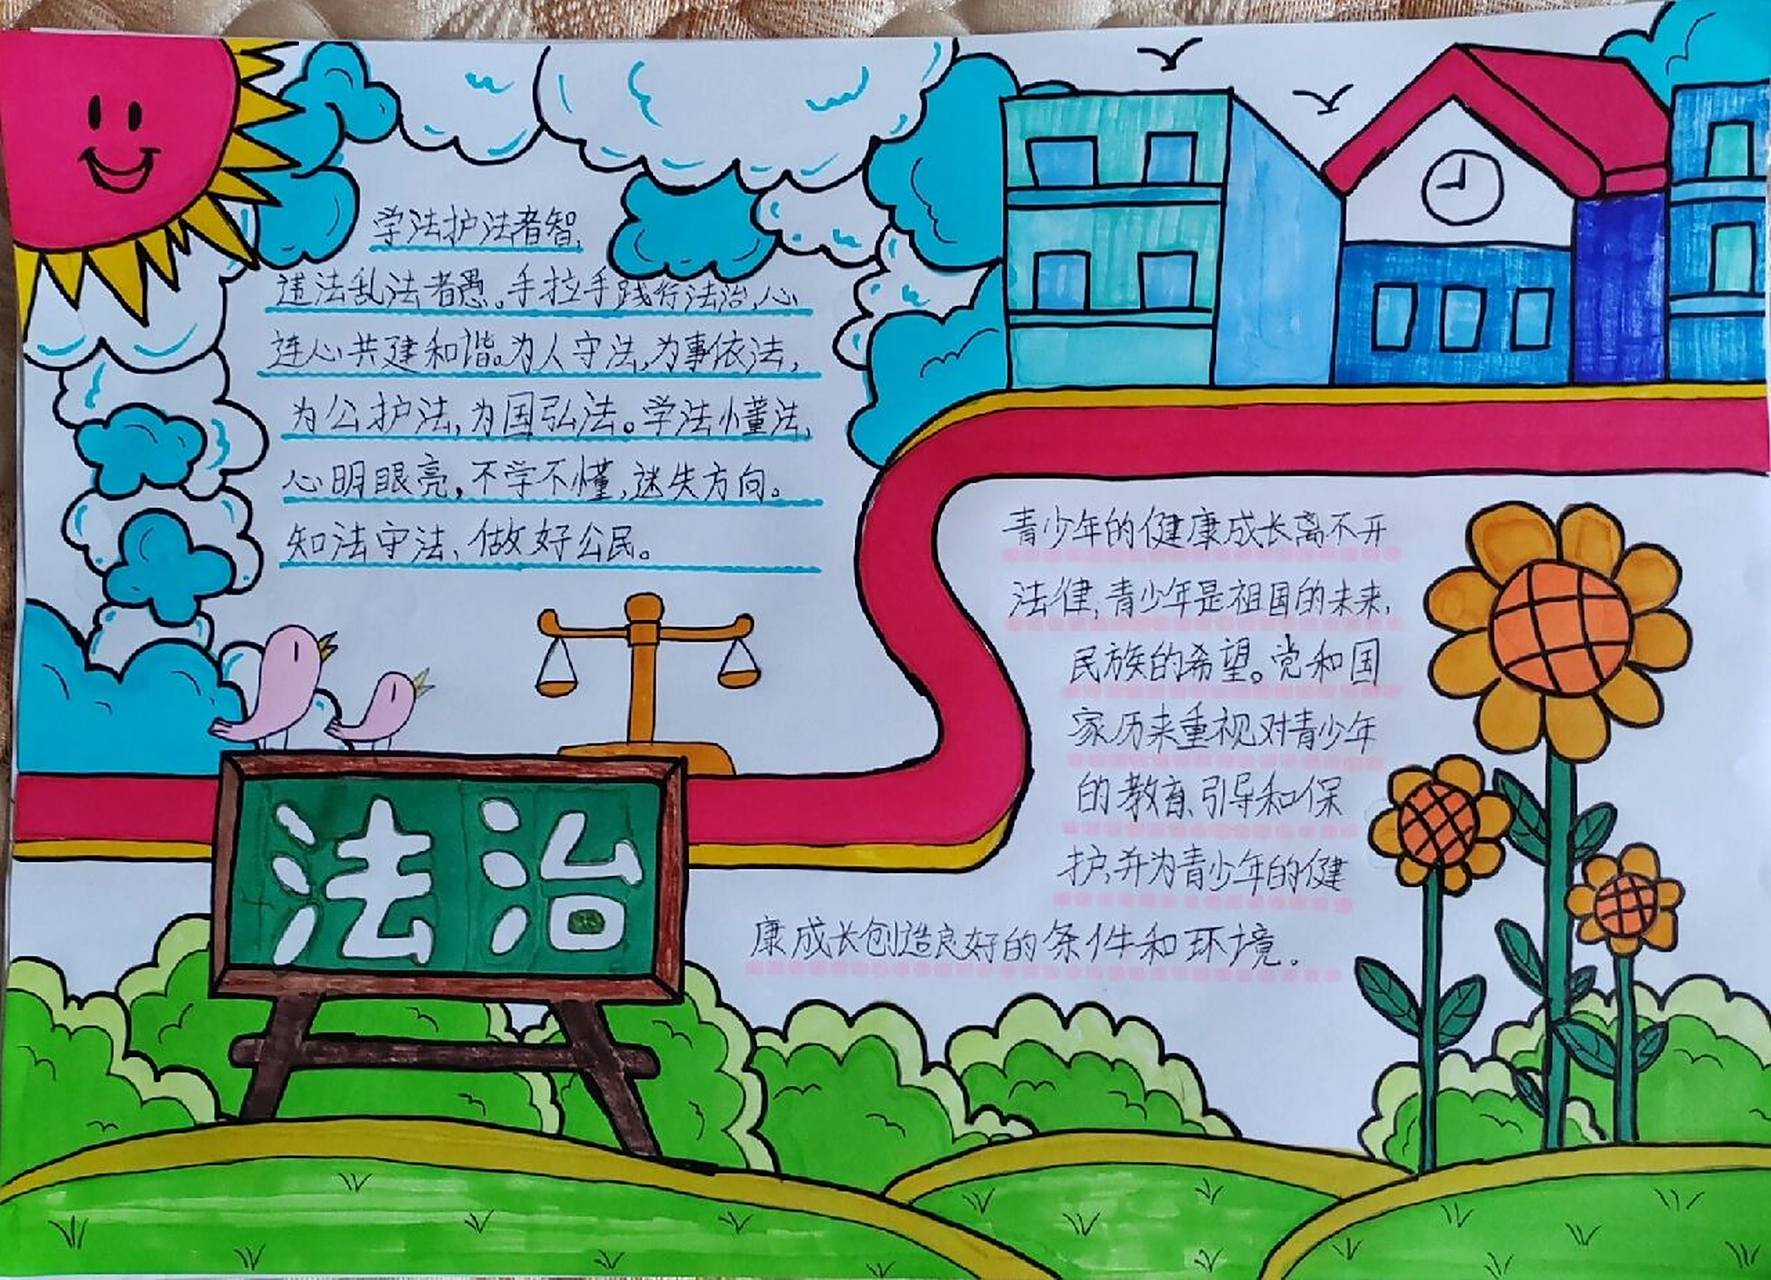 学法护法者智,
违法乱法者愚。手拉手践行法治,心
连心共建和谐。为人守法,为事依法,
为公护法,为国弘法。学法懂法,
心明眼亮,不学不懂,迷失方向。
知法守法、做好公民。
青少年的健康成长离不开
法律,青少年是祖国的未来,
民族的希望。党和国
家历来重视对青少年
的教育、引导和保
护,并为青少年的健
康成长创造良好的条件和环境。
法治